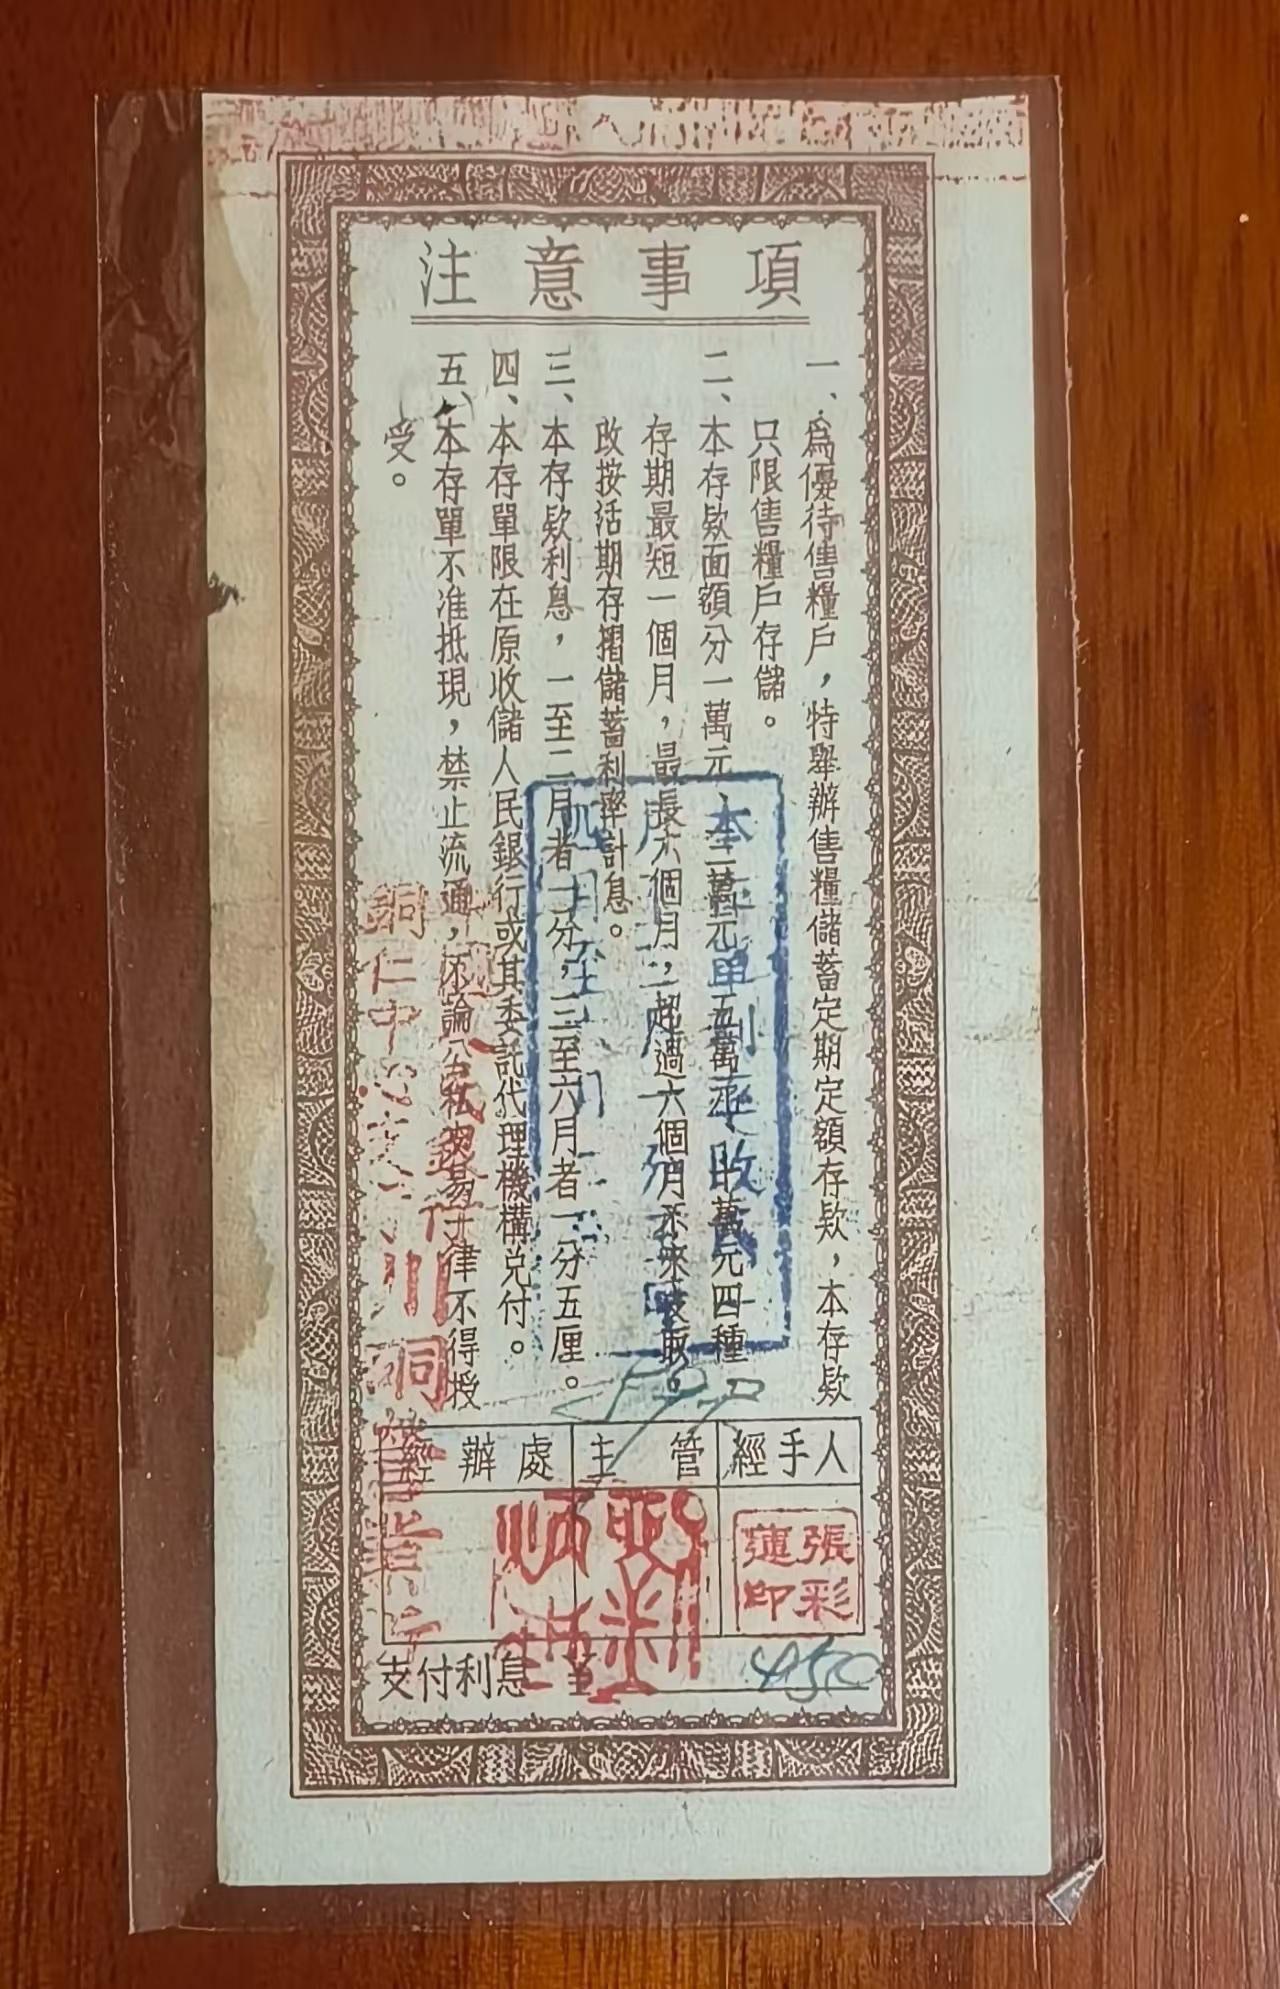 注意事項
一、為優待售糧戶，特舉辦售糧儲蓄定期定額存欵，本存欵
只限售糧戶存儲。
二、本存欵面額分一萬元、二萬元、五萬元、十萬元四種，
存期最短一個月，最長六個月，超過六個月不來支取。
改按活期存摺儲蓄利率計息。
三、本存欵利息，一至二月者一分，三至六月者一分五厘。
四、本存單限在原收儲人民銀行或其委託代理機構兌付。
五、本存單不准抵現，禁止流通，不論公私交易一律不得授
受。
本 單利率改
銅仁中
經手人
主管
經辦處
張彩
蓮印
支付利息
450